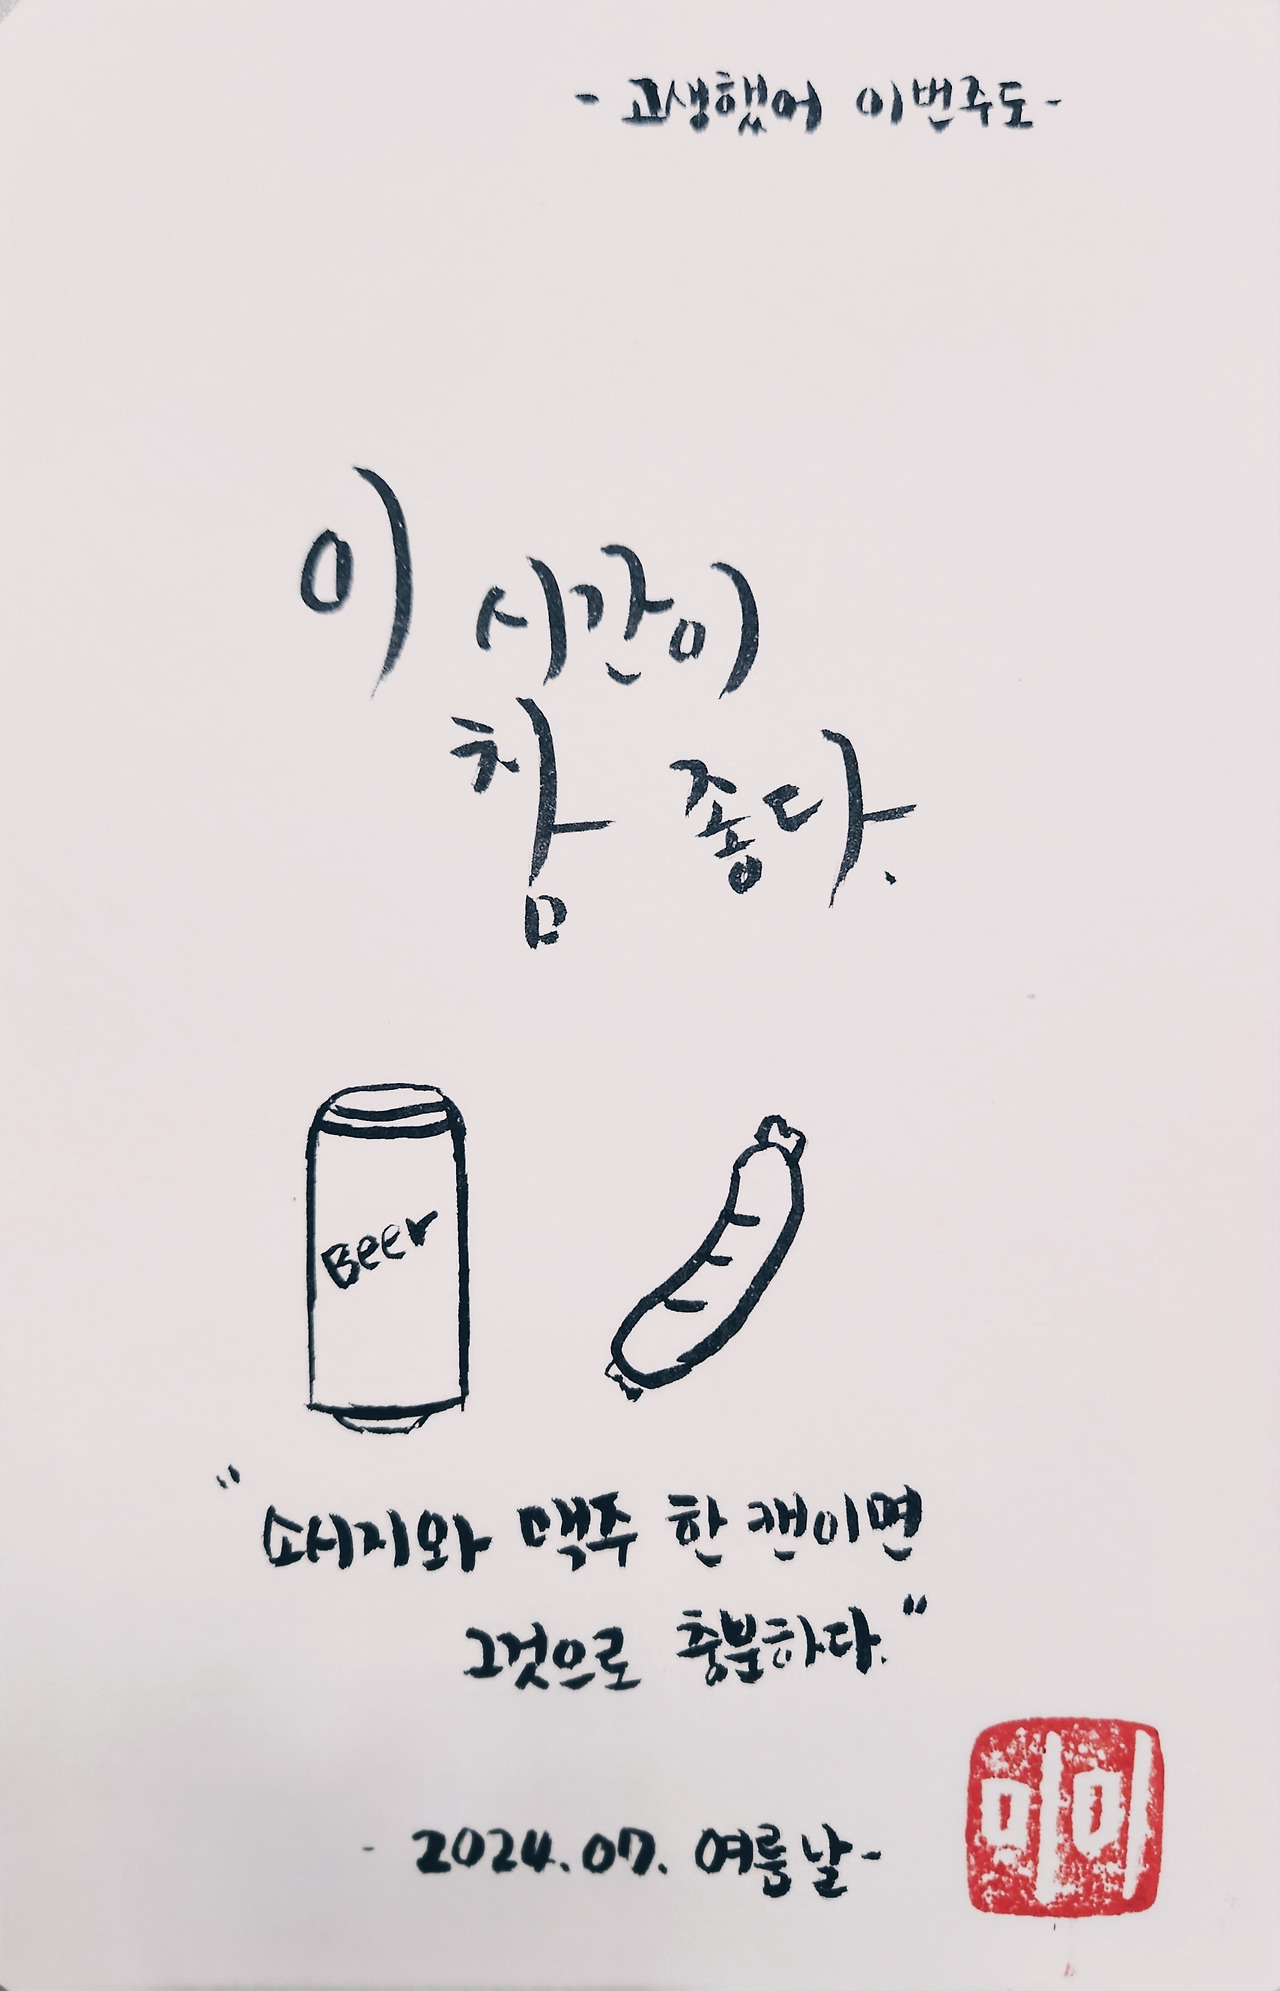 - 고생했어 이번주도 -
이 시간이
참 좋다.
Beer
"소시지와 맥주 한 캔이면
그것으로 충분하다."
- 2024.07. 여름날 -
미미